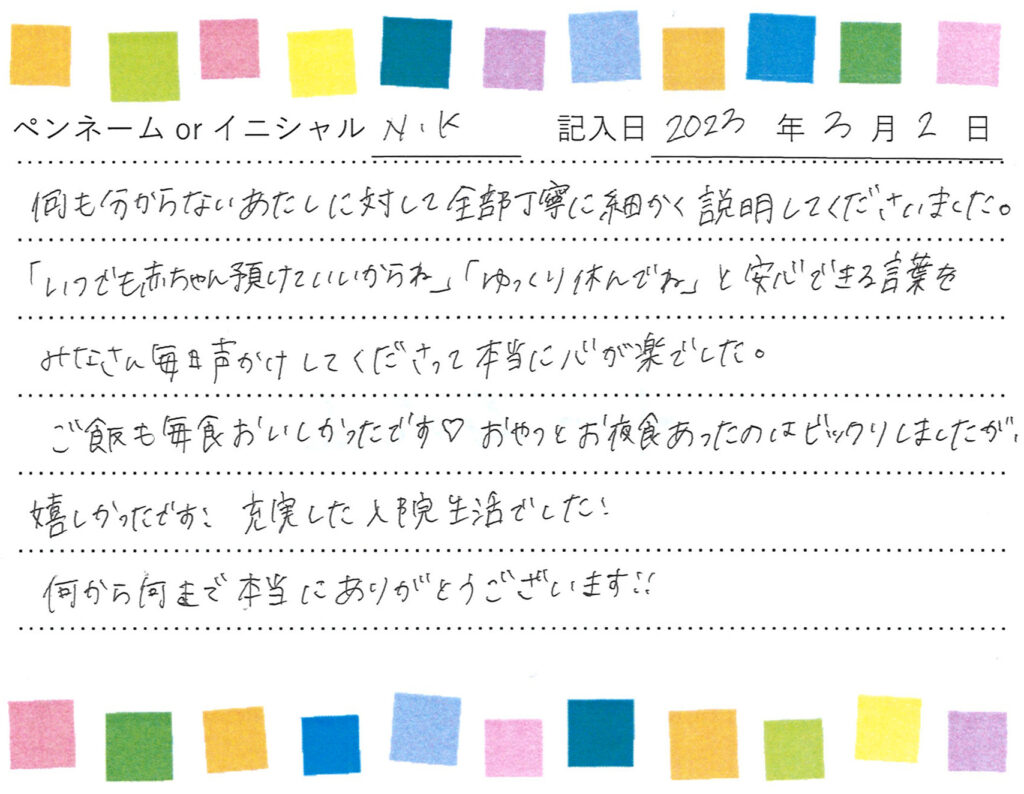 ペンネーム or イニシャル N.K 記入日 2023 年 3 月 2 日
何も分からないあたしに対して全部丁寧に細かく説明してくださいました。
「いつでも赤ちゃん預けていいからね」「ゆっくり休んでね」と安心できる言葉を
みなさん毎日声かけしてくださって本当に心が楽でした。
ご飯も毎食おいしかったです♡ おやつとお夜食あったのはビックリしましたが、
嬉しかったです! 充実した入院生活でした!
何から何まで本当にありがとうございます!!